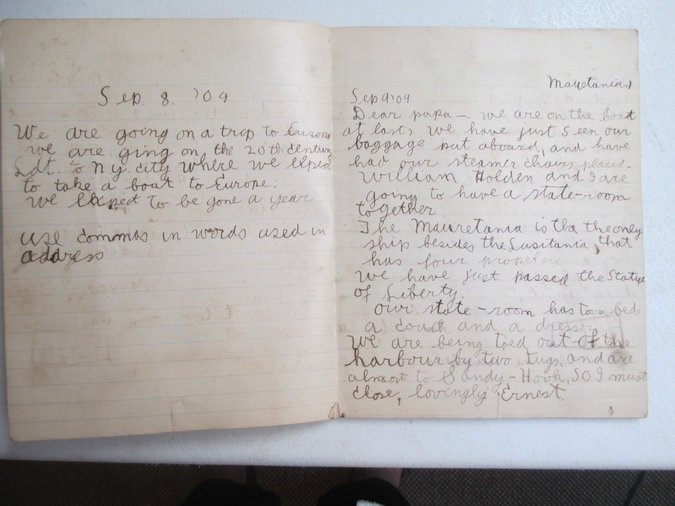 Sep. 8. '09
We are going on a trip to Europe
we are ging on, the 20th century
Ldt. to N.y. city where we expect
to take a boat to Europe:
We Expect to be gone a year
use commas in words used in
address
Mauretania,
Sep 9 '09
Dear papa—. we are on the boat
at last, we have just seen our
baggage put aboard, and have
had our steamer chairs placed.
William Holden and I are
going to have a state-room
together
The Mauretania is the only
ship besides the Lusitania, that
has four propelers
We have just passed the Statue
of Liberty.
Our state-room has two beds
a couch and a dresser,
We are being toed out of the
harbour by two tugs, and are
almost to Sandy-Hook, SO I must
close, lovingly Ernest.